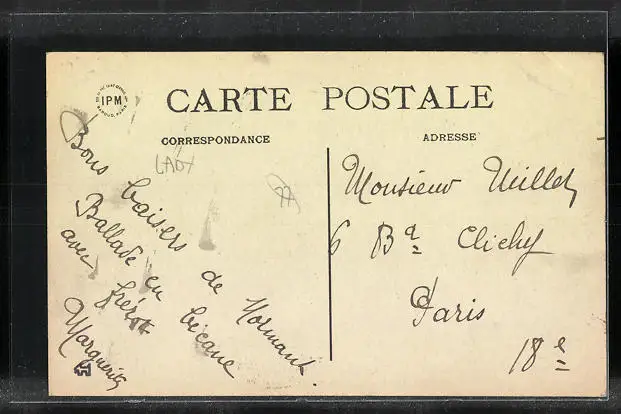 IPM
CARTE POSTALE
CORRESPONDANCE
ADRESSE
LADY
Bons baisers de
Ballade en bécane
avec frérot
Marguerite
Monsieur Millet
6 Bd Clichy
Paris
18e